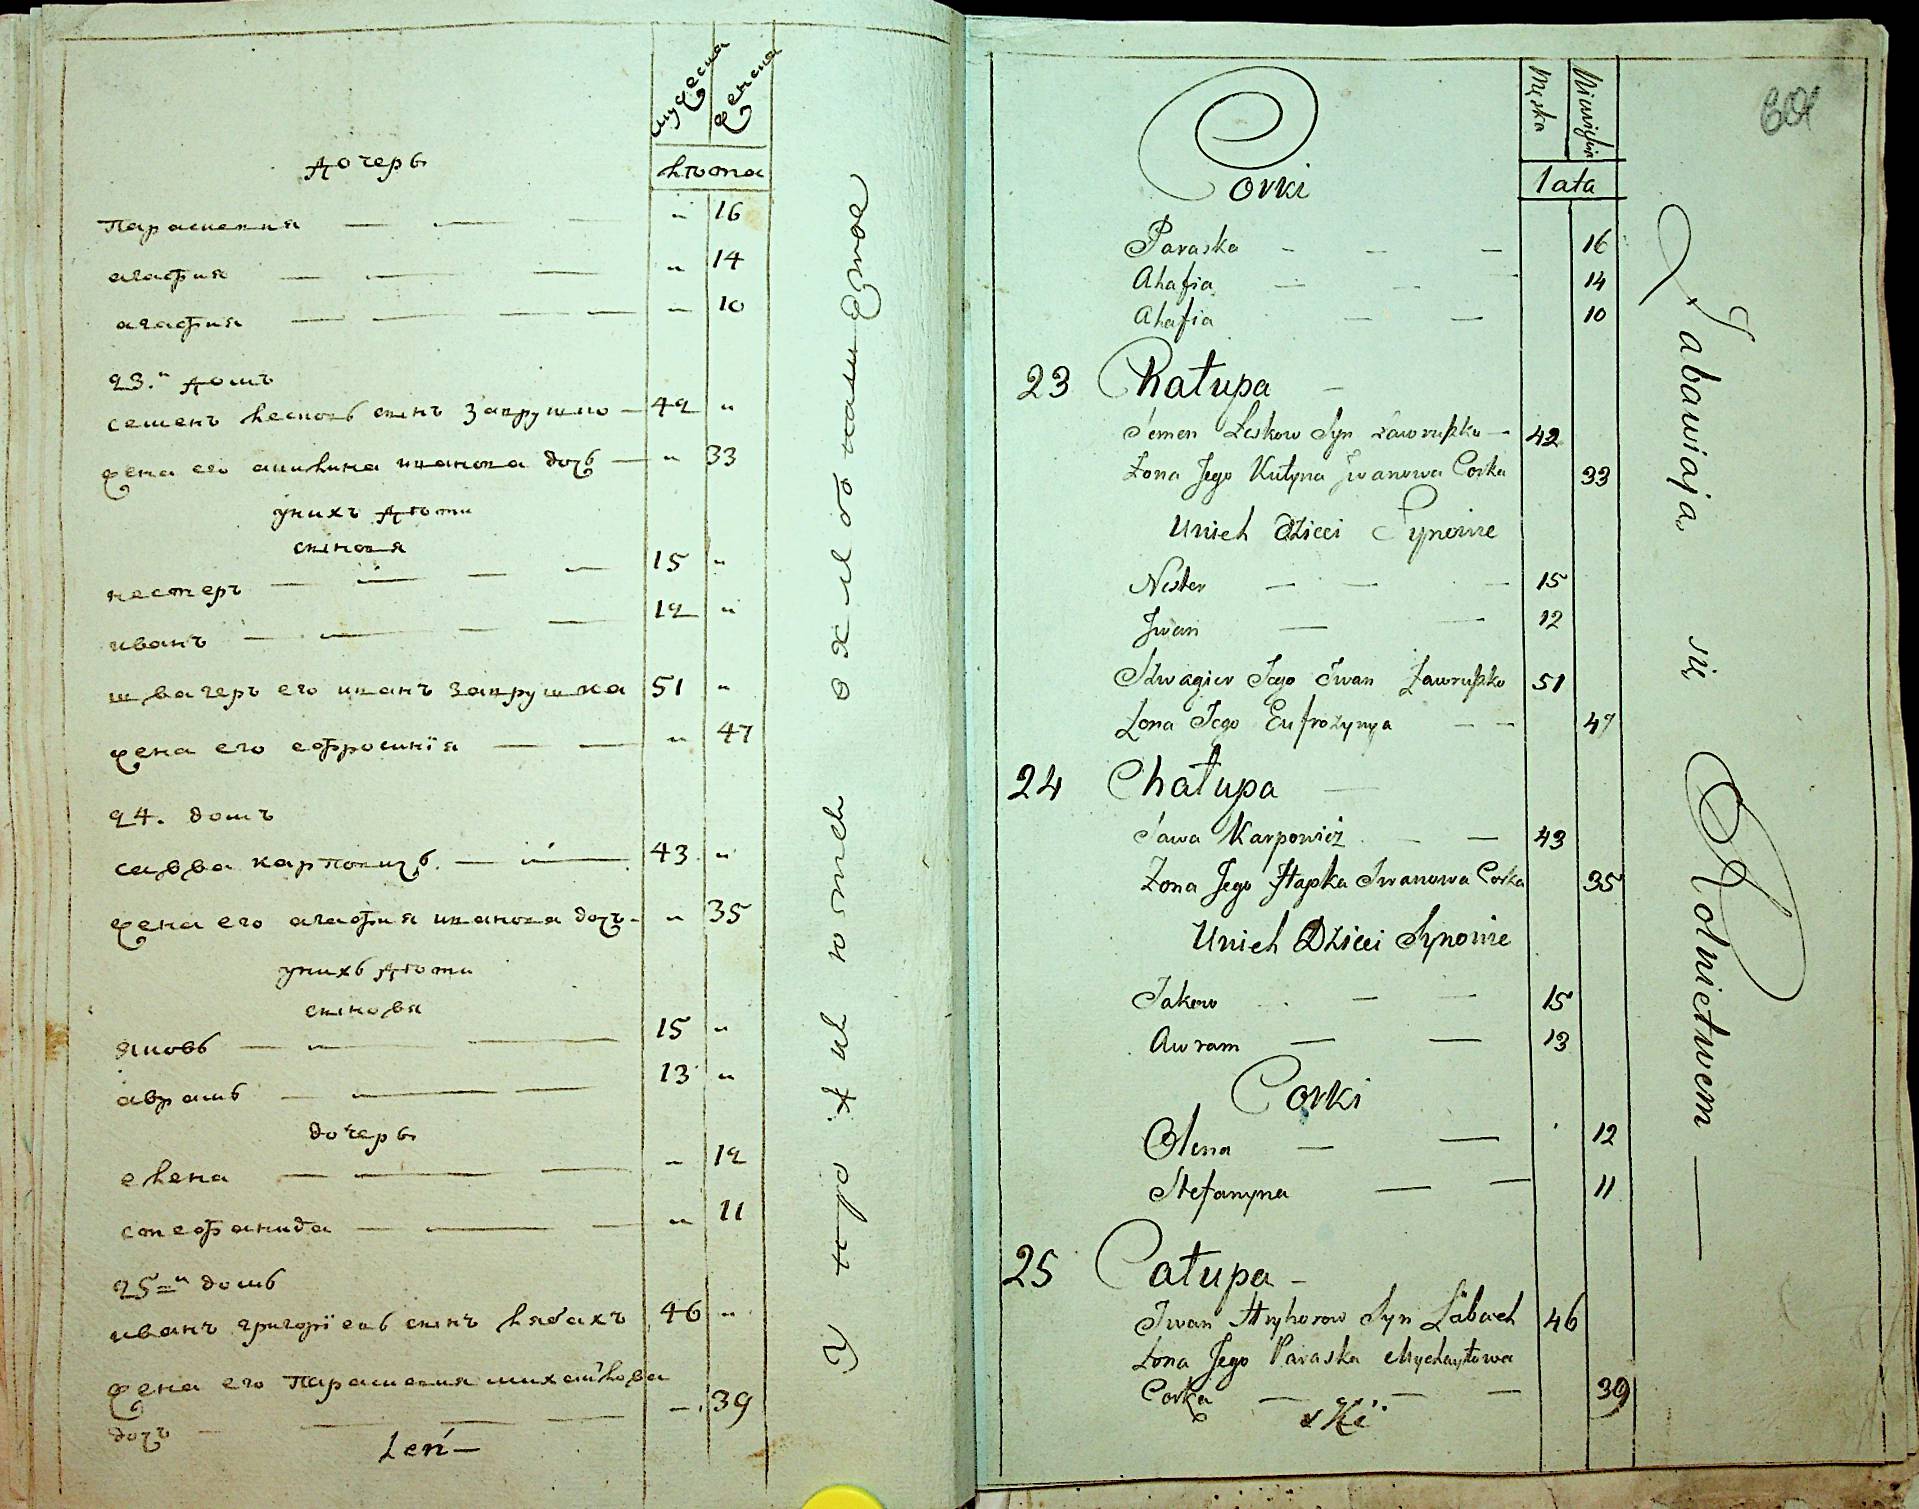 мужеска
женска
лѣта
дочерь
парасковия — — — „ 16
агафия — — — „ 14
агафия — — — — — „ 10
23.й домъ
семенъ лесковъ сынъ заврушко — 42 „
жена его акилина иванова дочь — „ 33
у нихъ дѣти
сыновья
нестеръ — — — — 15 „
иванъ — — — — 12 „
швагеръ его иванъ заврушка 51 „
жена его ефросинія — — „ 47
24. домъ
савва карповичь. — — 43 „
жена его агафия иванова дочь - „ 35
у нихъ дѣти
сыновя
яковъ — — — 15 „
аврамъ — — — 13 „
дочерь
елена — — — „ 12
стефанида — — — „ 11
25=й домъ
иванъ григоріевъ сынъ лябахъ 46 „
жена его парасковия михайлова
дочь — — — „ 39
Leń —
хлѣбопашества
Męska
Niewieskia
lata
Corki
Paraska - - - 16
Ahafia — - 14
Ahafia — — 10
23 Chałupa —
Semen Leskow Syn Zawruszko — 42
Zona Jego Kulyna Jwanowa Corka 33
Unich Dzieci Synowie
Nester — — — 15
Jwan — — 12
Szwagier Jego Iwan Zawruszko 51
Zona Jego Eufrozynya — — 47
24 Chałupa —
Sawa Karpowicz — — 43
Zona Jego Hapka Iwanowa Corka 35
Unich Dzieci Synowie
Jakow — — 15
Awram — — 13
Corki
Olena — — 12
Stefanyna — — 11
25 Całupa —
Jwan Hryhorow Syn Labach 46
Zona Jego Paraska Mychayłowa
Corka — — — 39
Zabawiają się Rolnictwem —